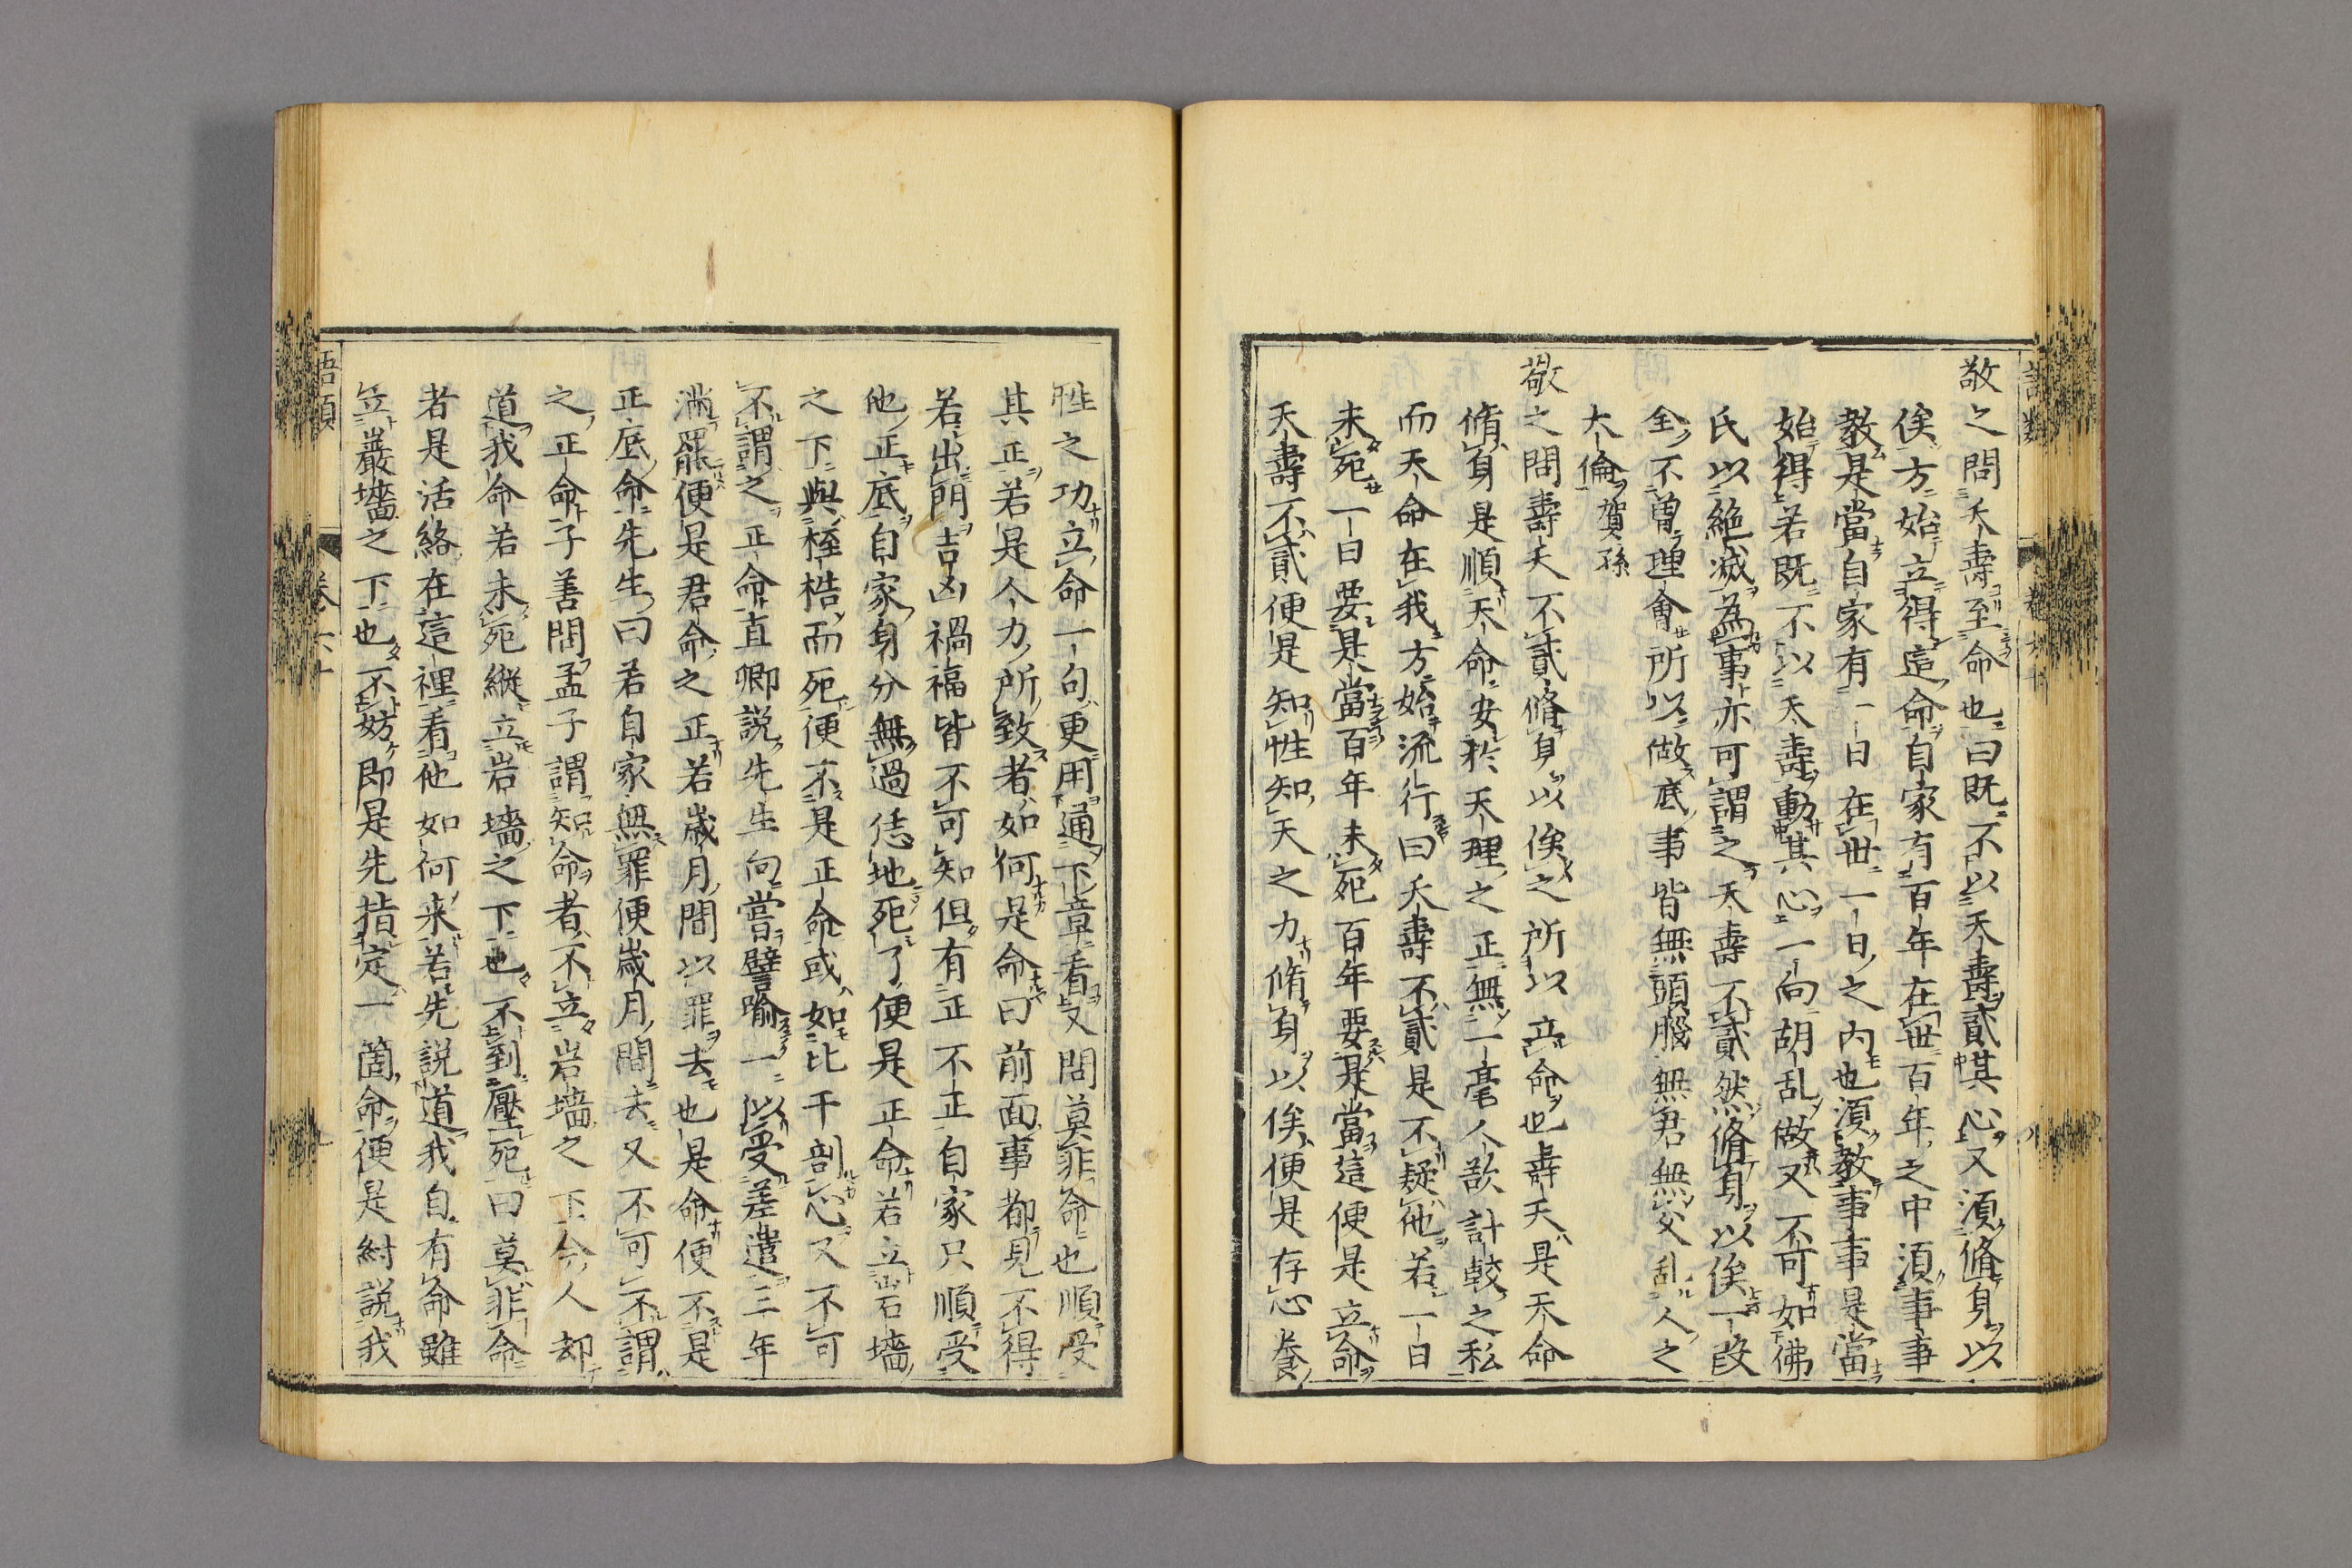 敬之問夭壽至命也曰既不以夭壽貳其心又須脩身以
俟方始立得這命自家有百年在世百年之中須事事
教是當自家有一日在世一日之內也須教事事是當
始得若既不以夭壽動其心一向胡乱做又不可如佛
氏以絶滅為事亦可謂之夭壽不貳然脩身以俟一段
全不曽理會所以做底事皆無頭腦無君無父乱人之
大倫賀孫
敬之問壽夭不貳脩身以俟之所以立命也壽夭是天命
脩身是順天命安於天理之正無一毫人欲計較之私
而天命在我方始流行曰夭壽不貳是不疑他若一日
未死一日要是當百年未死百年要是當這便是立命
夭壽不貳便是知性知天之力脩身以俟便是存心養
性之功立命一句更用通下章看又問莫非命也順受
其正若是人力所致者如何是命曰前面事都見不得
若出門吉凶禍福皆不可知但有正不正自家只順受
他正底自家身分無過恁地死了便是正命若立岩墻
之下與桎梏而死便不是正命或如比干剖心又不可
不謂之正命直卿説先生向嘗譬喻一以受差遣三年
滿罷便是君命之正若歲月間以罪去也是命便不是
正底命先生曰若自家無罪便歲月間去又不可不謂
之正命子善問孟子謂知命者不立岩墻之下今人却
道我命若未死縱立岩墻之下也不到壓死曰莫非命
者是活絡在這裡看他如何来若先説道我自有命雖
立巖墻之下也不妨即是先指定一箇命便是紂説我
語類
卷六十